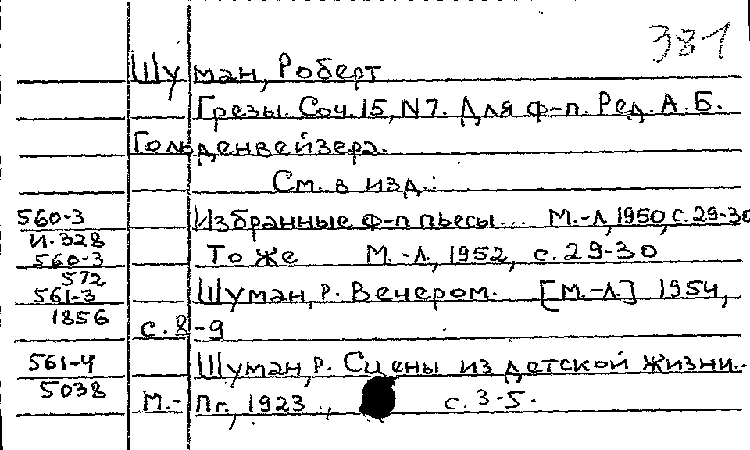 381
Шуман, Роберт
Грезы. Соч. 15, N7. Для ф-п. Ред. А. Б.
Гольденвейзера.
См. в изд.:
560-3 Избранные ф-п пьесы... М.-Л, 1950, с. 29-30
И-328
560-3 То же М.-Л, 1952, с. 29-30
572
561-3 Шуман, Р. Вечером. [М.-Л] 1954,
1856 с. 8-9
561-4 Шуман, Р. Сцены из детской жизни.
5038 М.-Пг, 1923., с. 3-5.